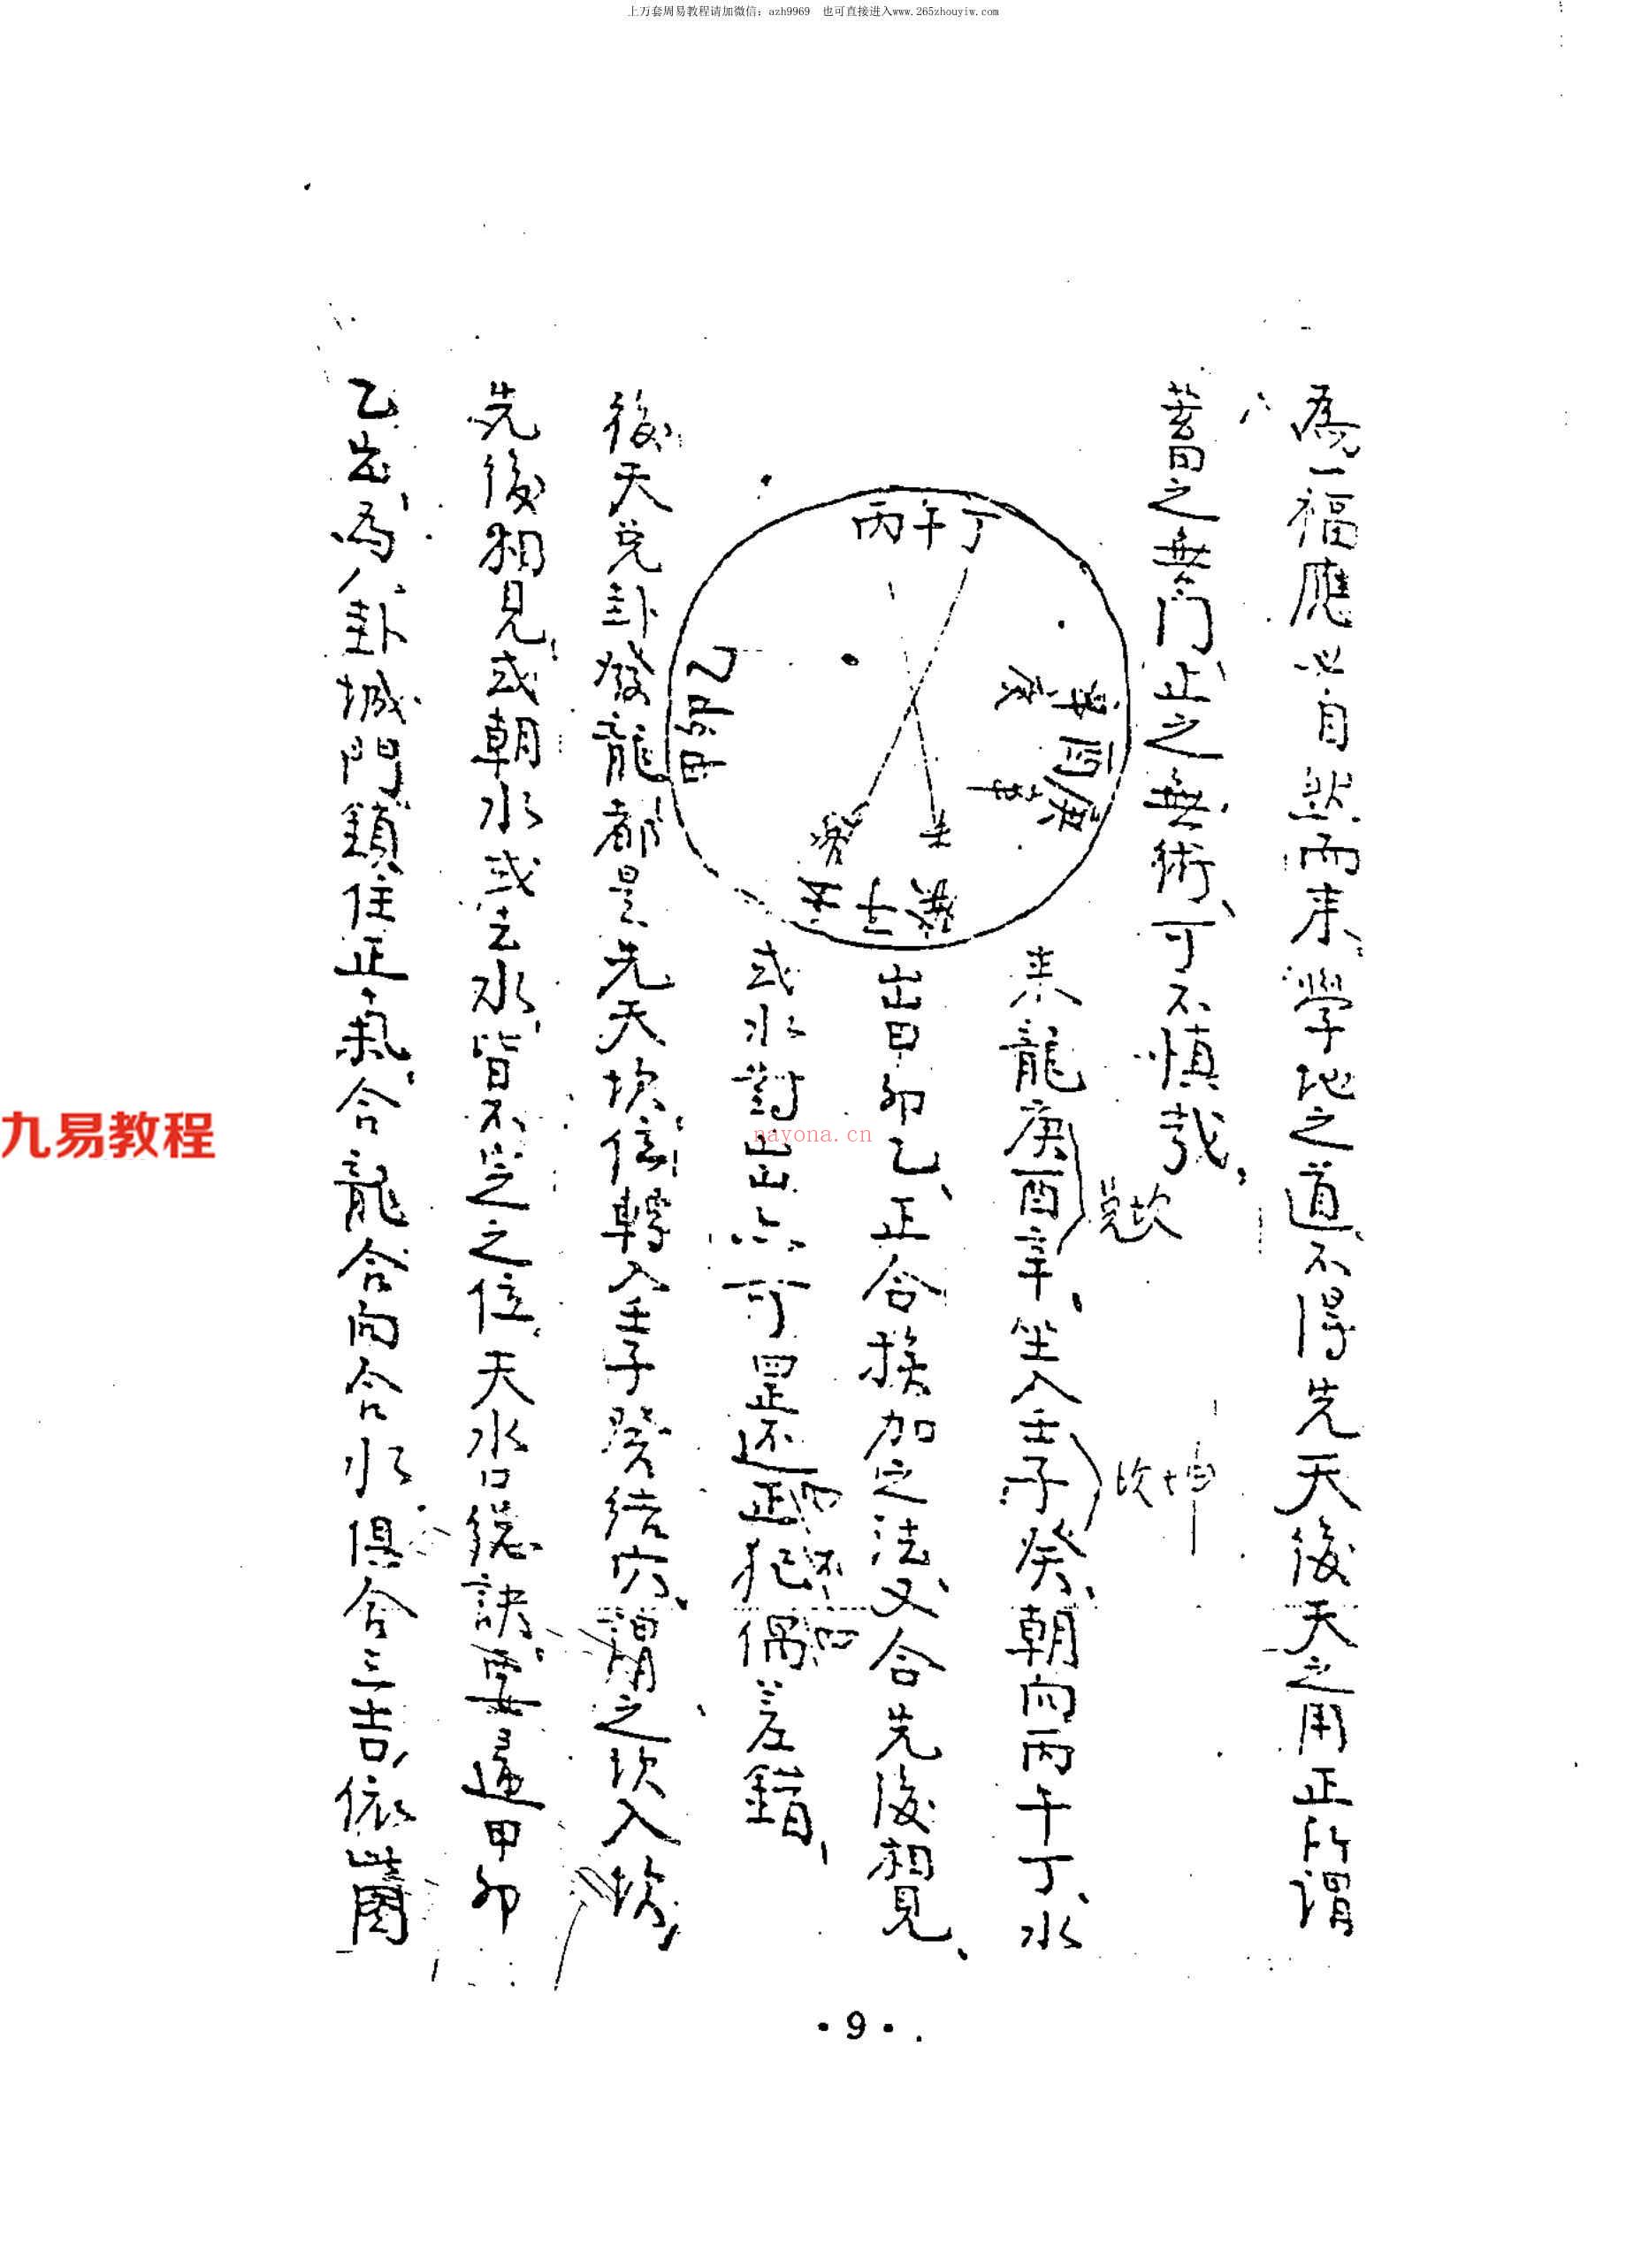 上万套周易教程请加微信：azh9969　也可直接进入www.265zhouyiw.com
為一福應必自然而来、學地之道、不得先天後天之用正所謂
蓄之無门、止之無術、可不慎哉、
丙午丁
来龍庚酉辛、坐入壬子癸、朝向丙午丁、水
兑坎
坎坤
出甲卯乙、正合挨加之法、又合先後相見、
或水對出亦可罡还正犯偶差錯、
後天兑卦發龍都是先天坎位、轉入壬子癸结穴、謂之坎入坎、
先後相見、或朝水或去水、皆不空之位、天水口総訣、要逼甲卯
乙出、為八卦城門鎮住正氣、合龍合向合水俱合三吉、依此圖
九易教程
nayona.cn
·9·